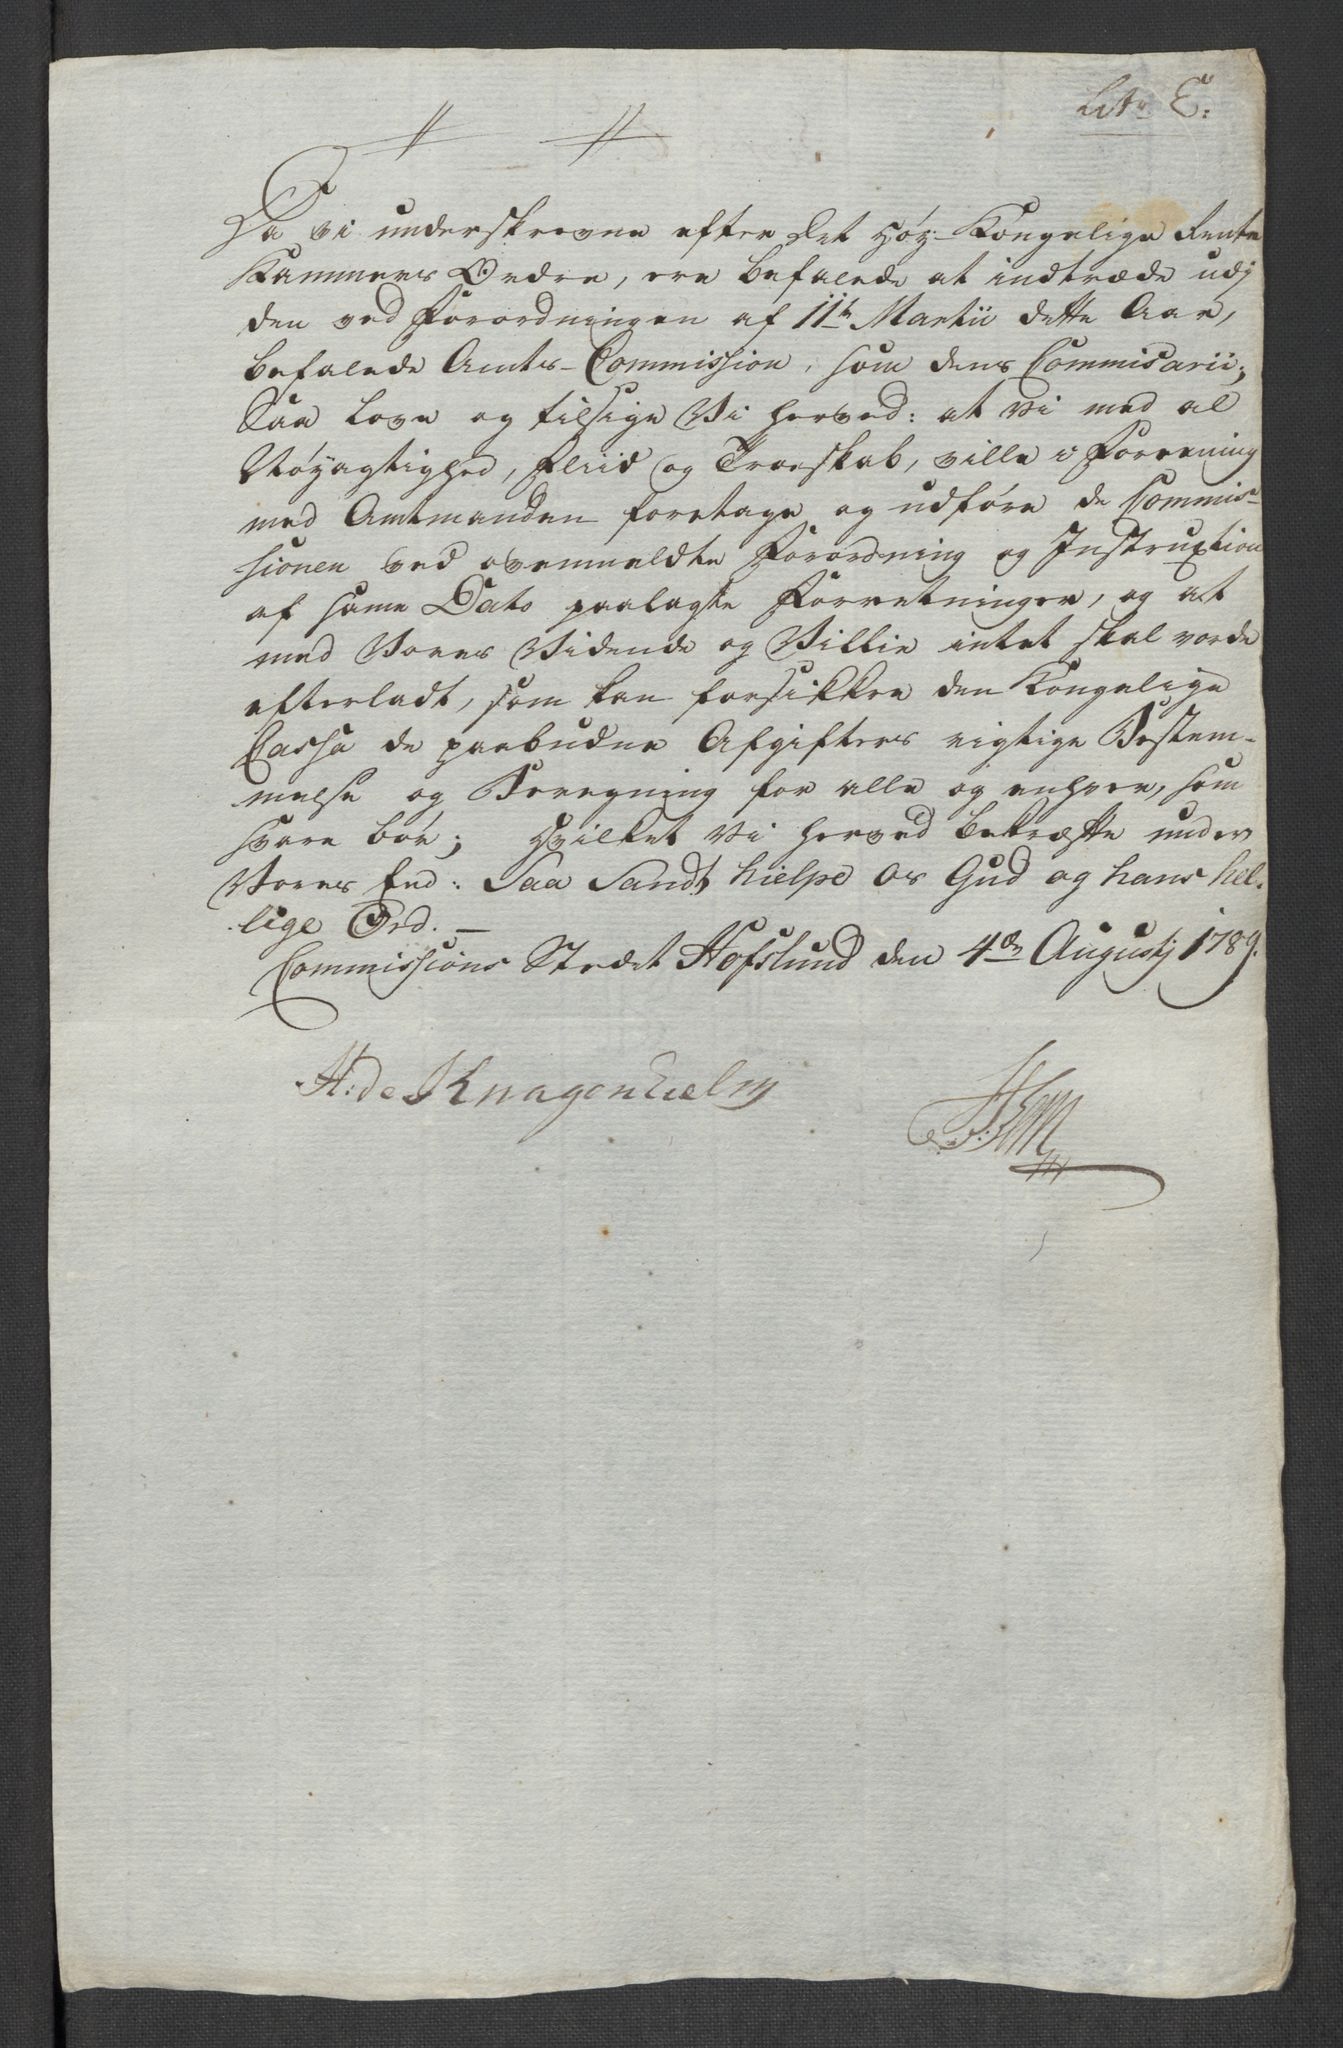 Litr E:
Da vi underskrevne efter Det Høy-Kongelige Rente
Kammers Ordre, ere befalede at indtræde udj
den ved Forordningen af 11te Martii dette Aar,
befalede Amts-Commission, som dens Commisarii;
Saa love og tilsige Vi herved: at Vi med al
Nøyagtighed, Fliid og Troeskab, ville i Foreening
med Amtmanden foretage og udføre de Commis-
sionen ved ovenmeldte Forordning og Instruxtion
af same Dato paalagte Forretninger, og at
med Vores Vidende og Villie intet skal vorde
efterladt, som kan forsikkre den Kongelige
Cassa de paabudne Afgifters rigtige Bestem-
melse og Beregning for alle og enhver, som
svare bør; hvilket Vi herved bekræfte under
Vores Eed: Saa Sandt hielpe os Gud og hans hel-
lige Ord. —
Commissions Stedet Hofslund den 4de Augustj 1789.
H: de Knagenhielm